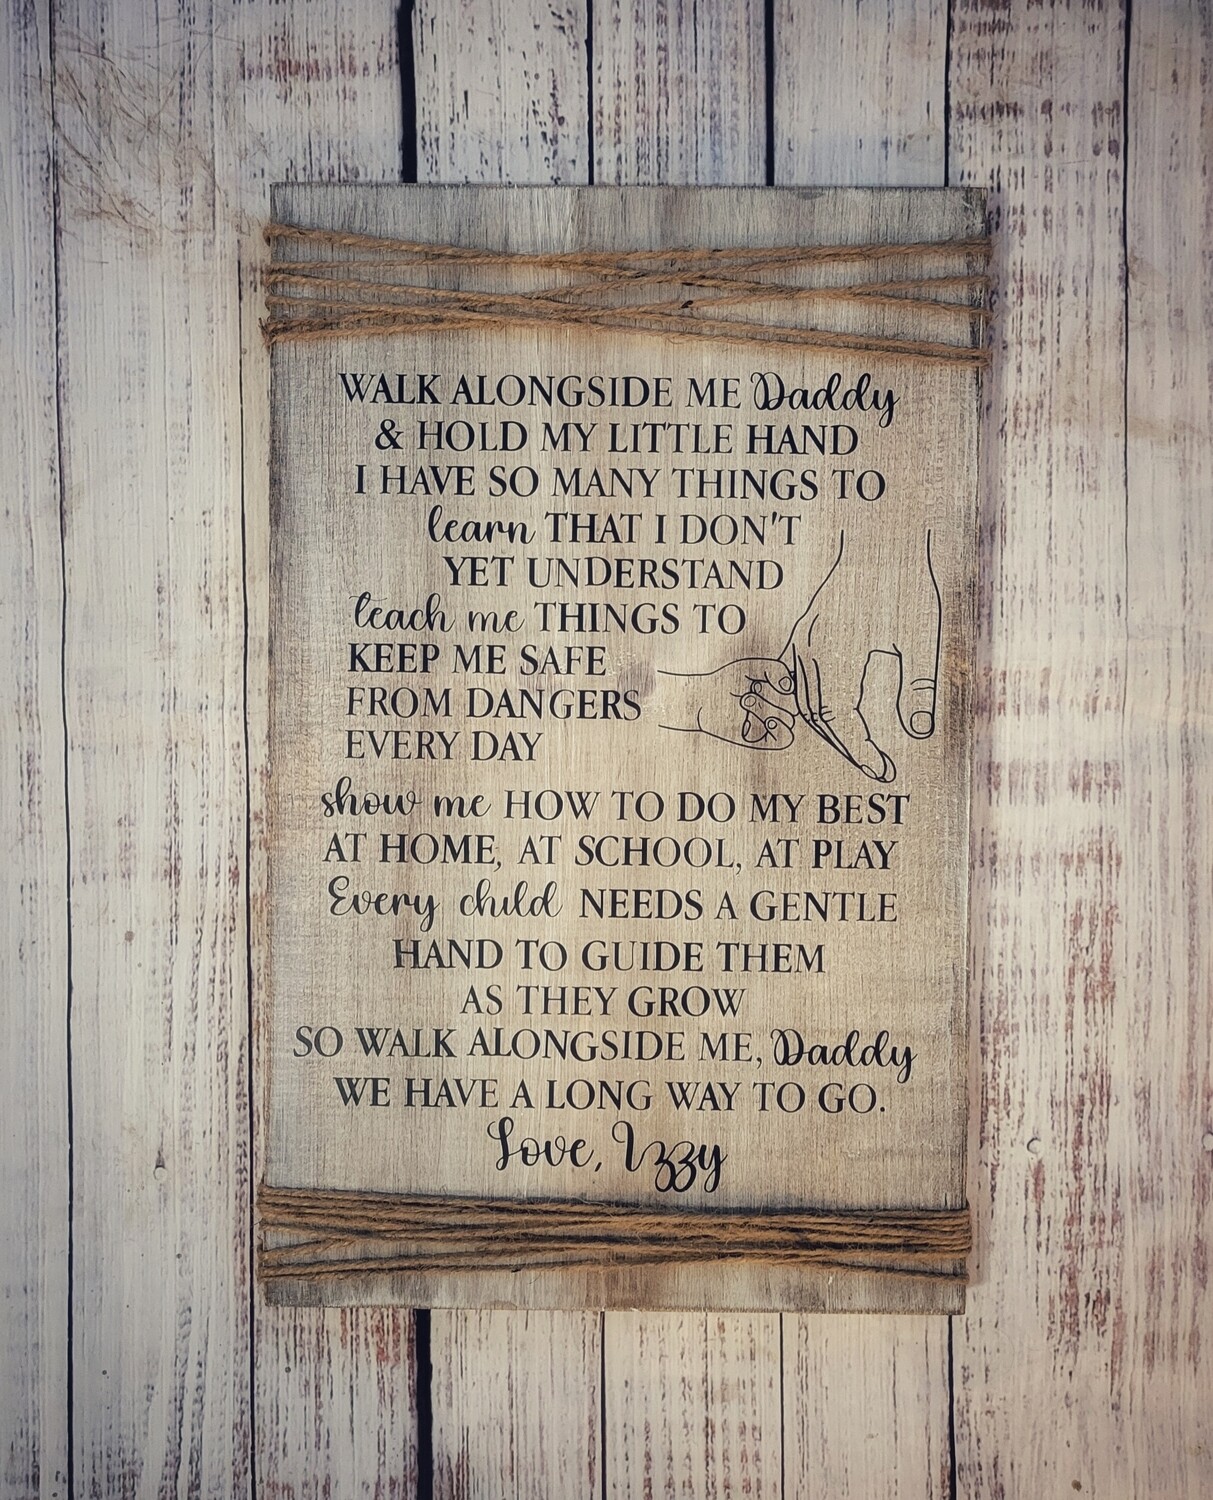 WALK ALONGSIDE ME Daddy
& HOLD MY LITTLE HAND
I HAVE SO MANY THINGS TO
learn THAT I DON'T
YET UNDERSTAND
teach me THINGS TO
KEEP ME SAFE
FROM DANGERS
EVERY DAY
show me HOW TO DO MY BEST
AT HOME, AT SCHOOL, AT PLAY
Every child NEEDS A GENTLE
HAND TO GUIDE THEM
AS THEY GROW
SO WALK ALONGSIDE ME, Daddy
WE HAVE A LONG WAY TO GO.
Love, Izzy